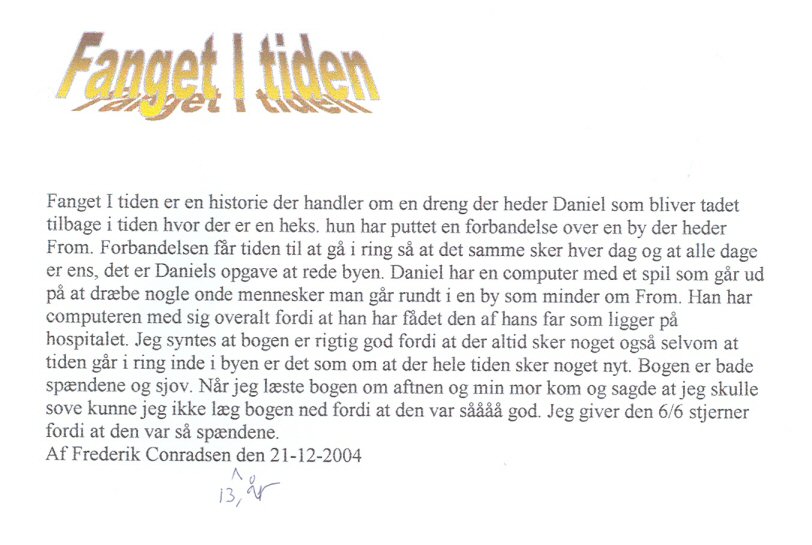 Fanget I tiden
Fanget I tiden er en historie der handler om en dreng der heder Daniel som bliver tadet
tilbage i tiden hvor der er en heks. hun har puttet en forbandelse over en by der heder
From. Forbandelsen får tiden til at gå i ring så at det samme sker hver dag og at alle dage
er ens, det er Daniels opgave at rede byen. Daniel har en computer med et spil som går ud
på at dræbe nogle onde mennesker man går rundt i en by som minder om From. Han har
computeren med sig overalt fordi at han har fådet den af hans far som ligger på
hospitalet. Jeg syntes at bogen er rigtig god fordi at der altid sker noget også selvom at
tiden går i ring inde i byen er det som om at der hele tiden sker noget nyt. Bogen er bade
spændene og sjov. Når jeg læste bogen om aftnen og min mor kom og sagde at jeg skulle
sove kunne jeg ikke læg bogen ned fordi at den var såååå god. Jeg giver den 6/6 stjerner
fordi at den var så spændene.
Af Frederik Conradsen den 21-12-2004
13, år